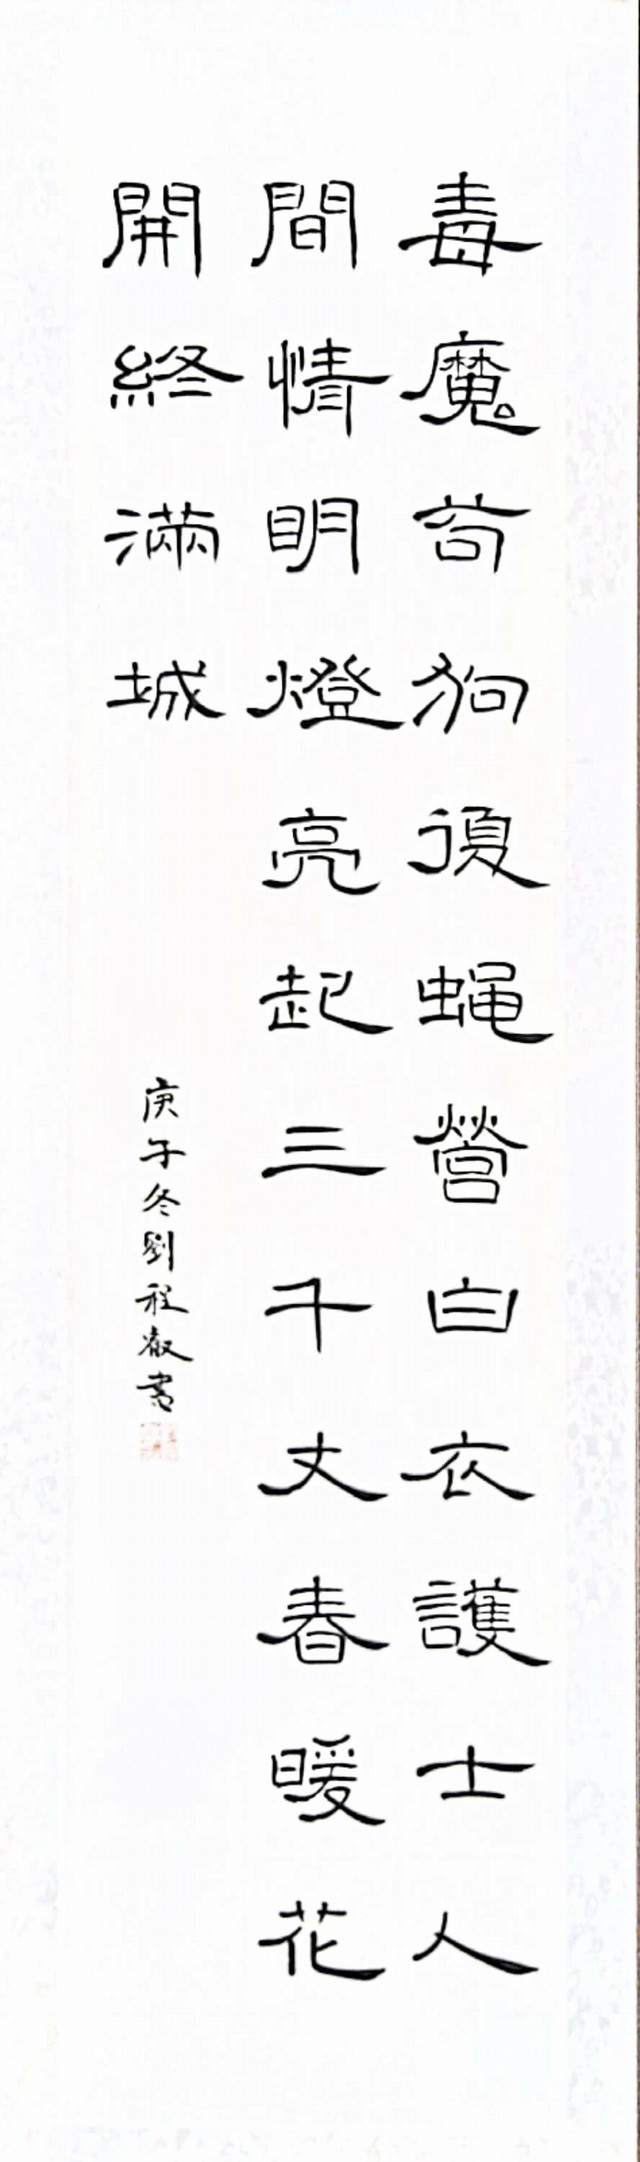 毒魔苟狗復蝇營白衣護士人
間情明燈亮起三千丈春暖花
開終滿城
庚子冬劉程叡書